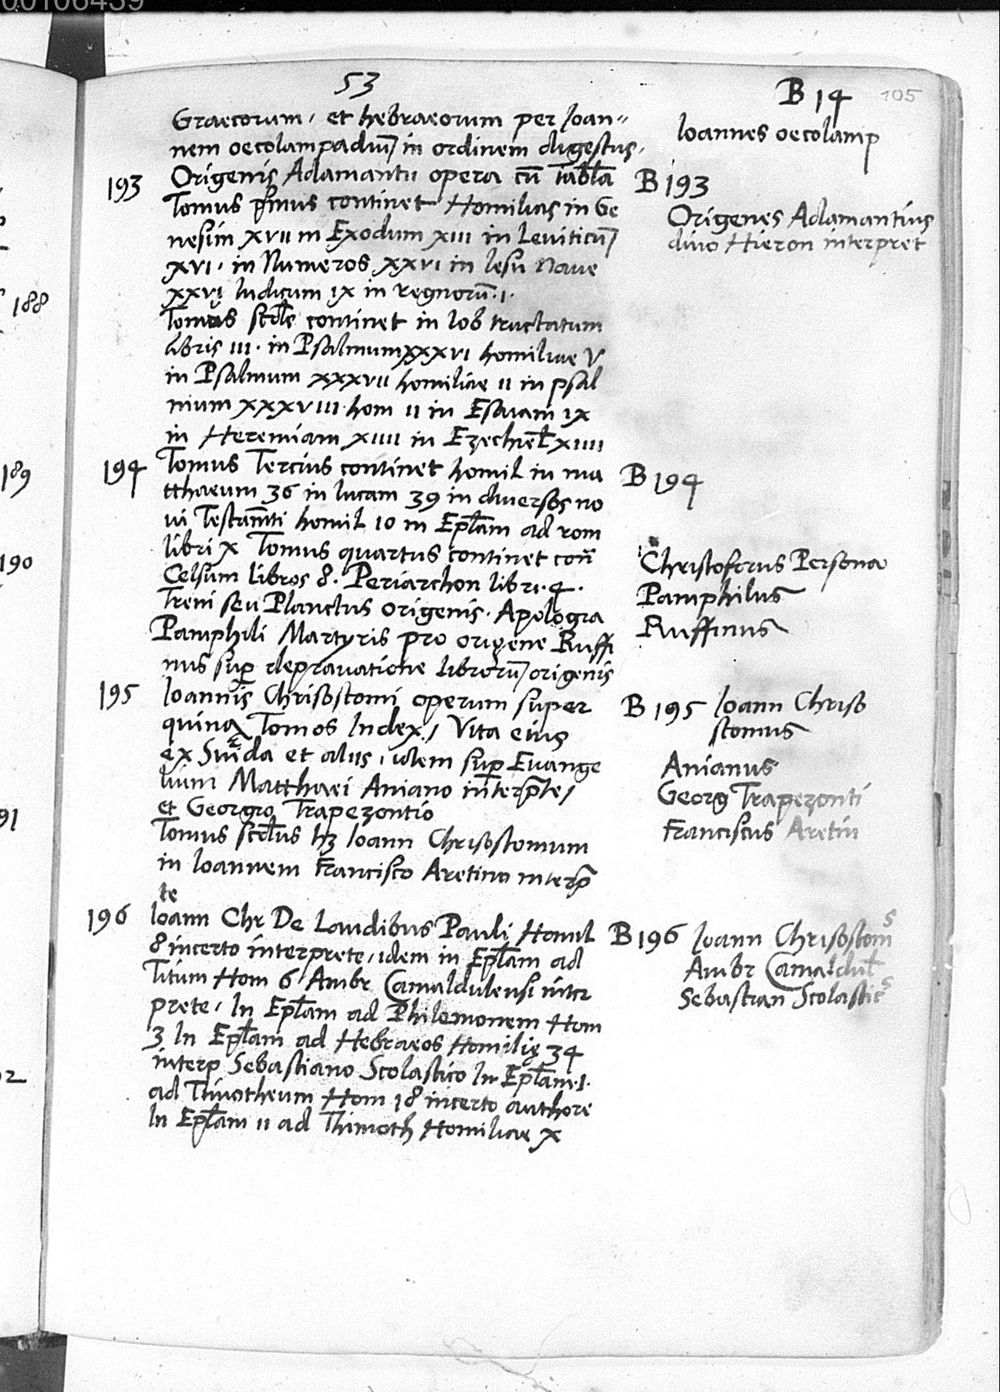 00106439
53
B 14 105
Graecorum, et hebraeorum per Ioan=
nem oecolampadiu in ordinem digestus.
Ioannes oecolamp
193 Origenis Adamantii opera cu tabla
B 193
Tomus pmus continet Homilias in Ge
nesim XVII in Exodum XIII in Leviticu
Origenes Adamantius
divo Hieron interpret
XVI. in Numeros XXVI in Iesu Nave
XXVI Iudicum IX in regnoru. I.
188
Tomus scdus continet in Iob tractatum
libris III. in Psalmum XXXVI homiliae V
in Psalmum XXXVII homiliae II in psal
mum XXXVIII hom II in Esaiam IX
in Heremiam XIIII in Ezechiel XIIII
189
194 Tomus Tercius continet homil in ma
B 194
tthaeum 36 in lucam 39 in diversos no
vi Testamti homil 10 in Eplam ad rom
libri X Tomus quartus continet con
190
Celsum libros 8. Periarchon libri. 4.
Treni seu Planctus origenis. Apologia
Pamphili Martyris pro origene Ruffi
nus sup depravatione libroru origenis
Christoferus Persona
Pamphilus
Ruffinus
195 Ioannis Chrisostomi operum super
B 195 Ioann Chriso
stomus
quinq Tomos Index, Vita eius
ex Suida et aliis, idem sup Euange
lium Matthaei Aniano interpte,
et Georgio Trapezontio
Anianus
Georg Trapezonti
Franciscus Aretin
91
Tomus scdus hz Ioann Chrisostomum
in Ioannem Francisco Aretino interp
te
196 Ioann Chr De Laudibus Pauli Homil
B 196 Ioann Chrisostoms
8 incerto interprete, idem in Eplam ad
Titum Hom 6 Ambr Camaldulensi inter
prete, In Eplam ad Philemonem Hom
Ambr Camaldul
Sebastian Scolastics
3 In Eplam ad Hebraeos Homilię 34
interp Sebastiano Scolastico In Eplam. I.
ad Thimotheum Hom 18 incerto authore
In Eplam II ad Thimoth Homiliae X